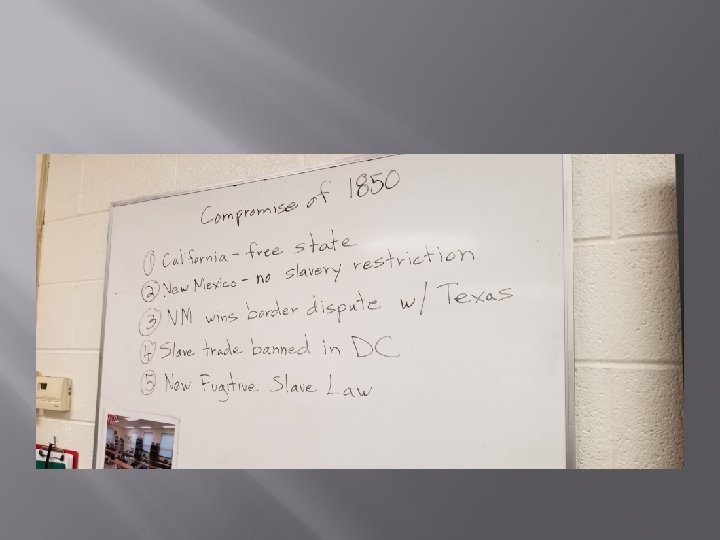 Compromise of 1850
① California - free state
② New Mexico - no slavery restriction
③ NM wins border dispute w/ Texas
④ Slave trade banned in DC
⑤ New Fugitive Slave Law